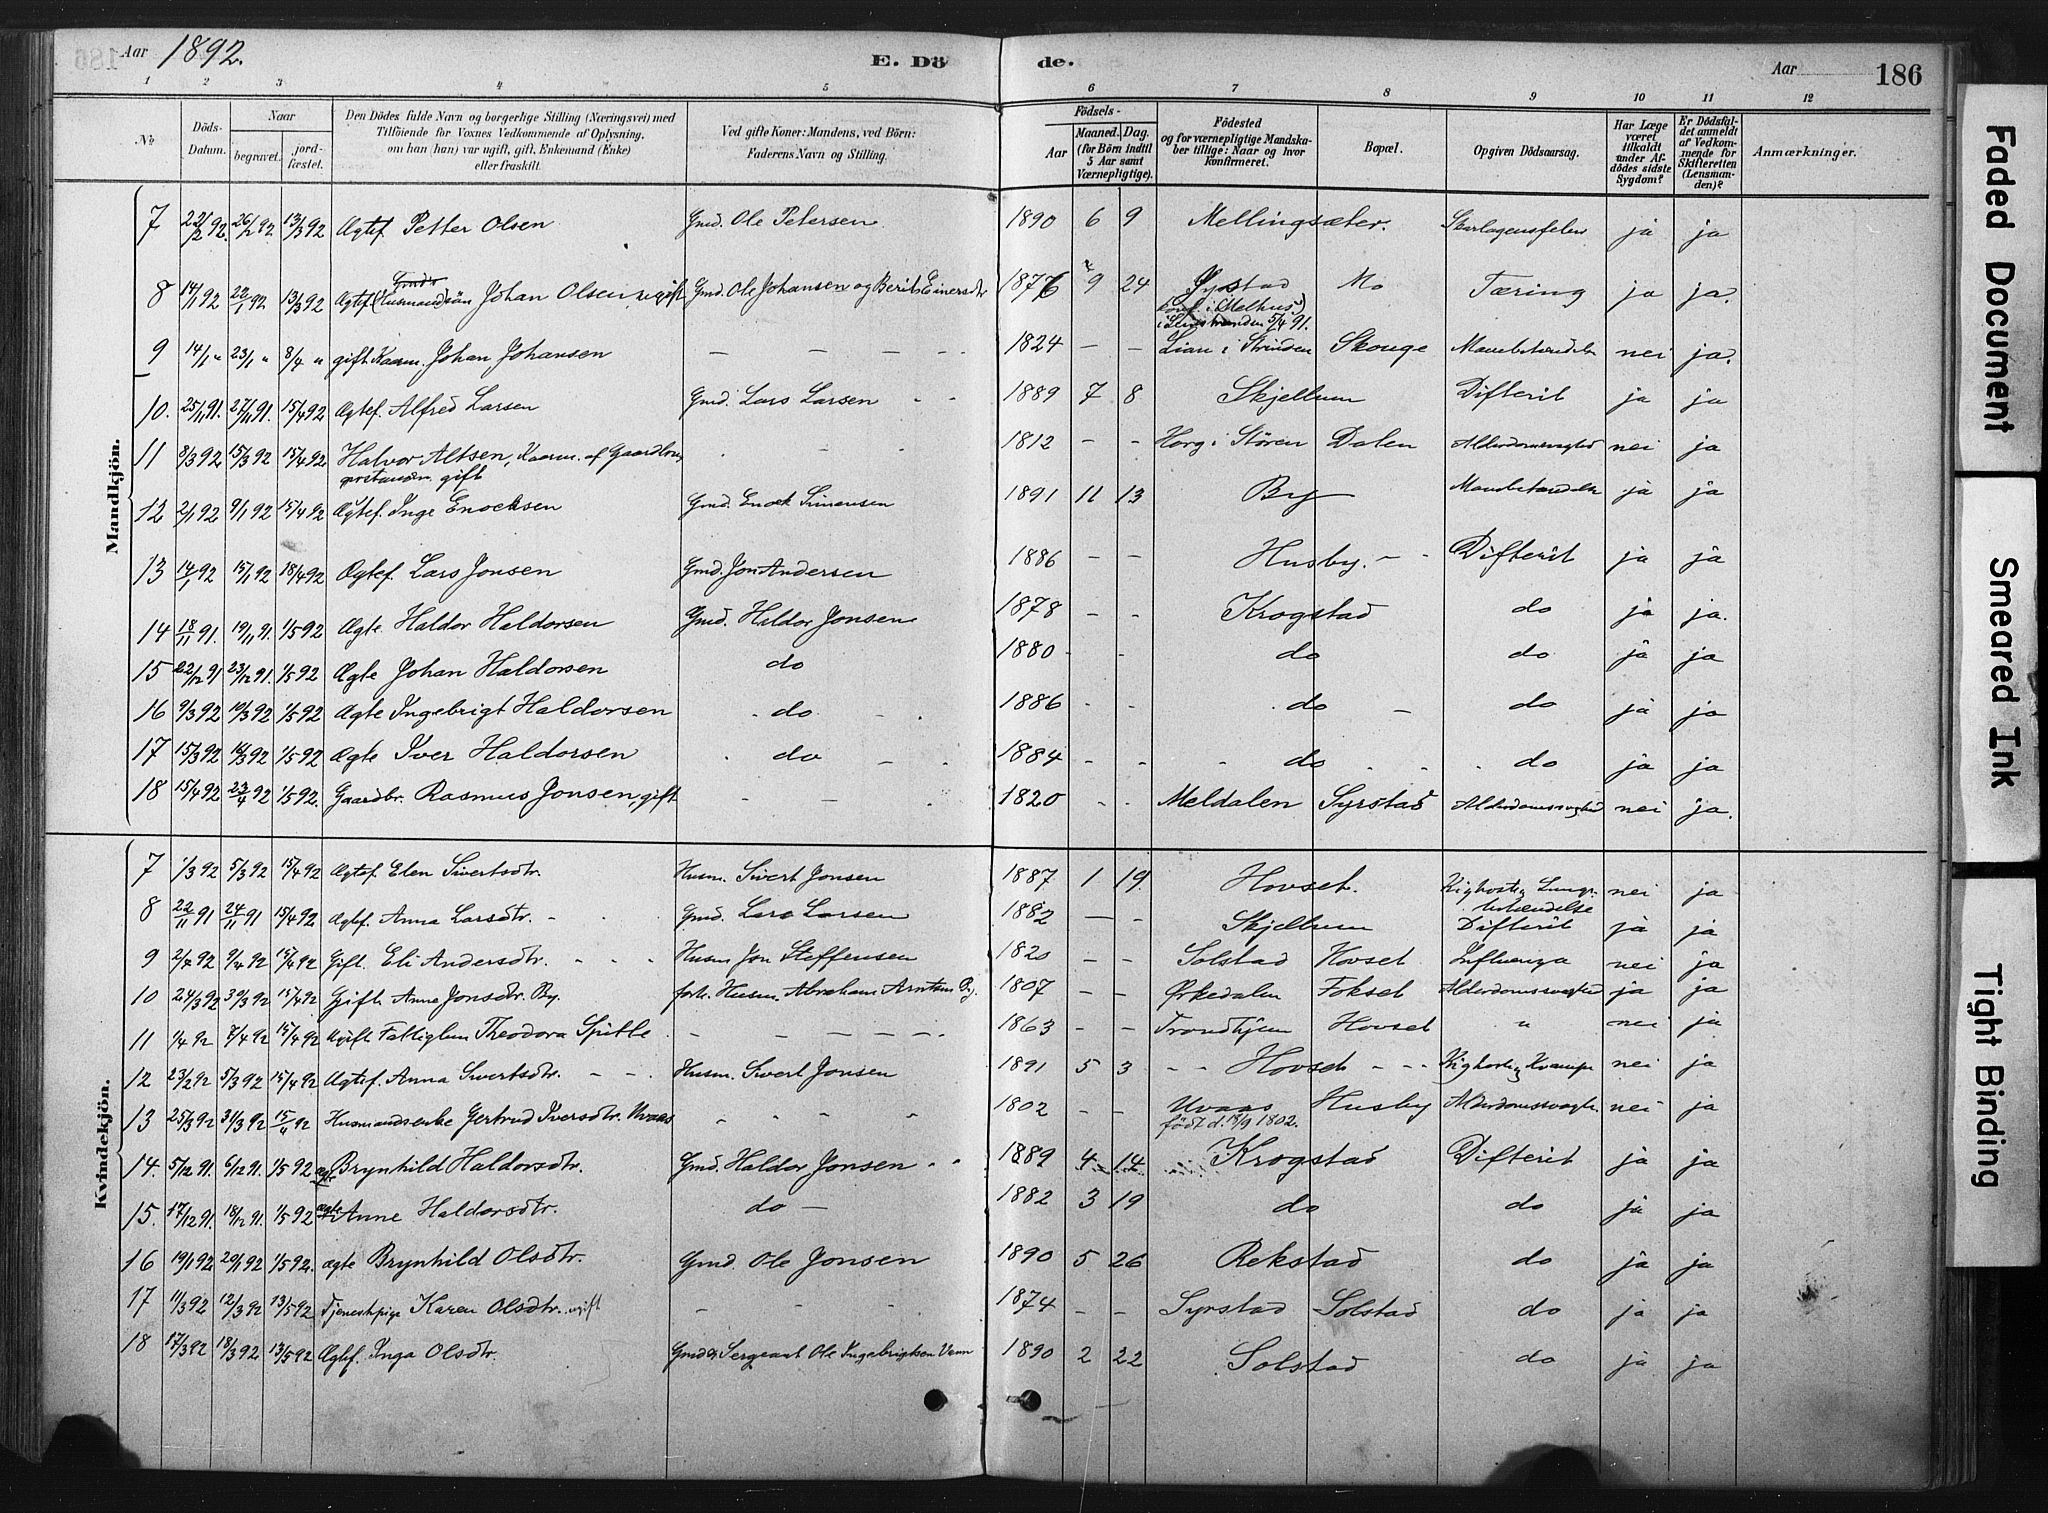 Aar 1892. E. Döde. Aar 186
1 2 3 4 5 6 7 8 9 10 11 12
No
Döds-Datum.
Naar
begravet.
jord-fæstet.
Den Dödes fulde Navn og borgerlige Stilling (Næringsvei) med
Tilföiende for Voxnes Vedkommende af Oplysning,
om han (hun) var ugift, gift, Enkemand (Enke)
eller fraskilt.
Ved gifte Koner: Mandens, ved Börn:
Faderens Navn og Stilling.
Födsels-
Aar
Maaned. Dag.
(for Börn indtil
5 Aar samt
Værnepligtige).
Födested
og for værnepligtige Mandska-
ber tillige: Naar og hvor
konfirmeret.
Bopæl.
Opgiven Dödsaarsag.
Har Læge
været
tilkaldt
under Af-
dödes sidste
Sygdom?
Er Dödsfal-
det anmeldt
af Vedkom-
mende for
Skifteretten
(Lensman-
den)?
Anmærkninger.
Mandkjön.
7 22/2 92. 26/2 92. 13/3 92 Ægtef. Petter Olsen Gmd. Ole Petersen. 1890 6 9 Mellingsæter. Skarlagensfeber ja ja
8 14/1 92 22/1 92 13/3 92 Ægtef. (Husmand) sön Johan Olsen, ugift Gmd. Ole Johansen og Berit Einersdtr 1876 9 24 Syrstad Mo Tæring ja ja.
Gmd's
konf. i Melhus
5/4 91.
9 14/1 " 23/1 " 8/4 " gift Kaarm. Johan Johansen – – – – 1824 – – Lian i Strinden Skouge Mavebetændelse nei ja.
10. 25/11 91. 27/11 91. 15/4 92 Ægtef. Alfred Larsen Gmd. Lars Larsen 1889 7 8 Skjellum Difterit ja ja
11 8/3 92 15/3 92 15/4 92 Halvor Altsen, Kaarm. af Gaardbru 1812 – – Horg i Stören Dalen Alderdomssvaghed nei ja
gift
12 2/1 92 9/1 92 15/4 92 Ægtef. Inge Enocksen Gmd. Enock Simensen 1891 11 13 By Mavebetændelse ja ja
13 14/1 92 15/1 92 18/4 92 Ægtef. Lars Jonsen Gmd. Jon Andersen 1886 – – Husby. – Difterit ja ja
14 18/11 91. 19/11 91. 1/5 92 Ægte Haldor Haldorsen Gmd. Haldor Jonsen 1878 – – Krogstad do ja ja.
15 22/12 91 23/12 91. 1/5 92 Ægte Johan Haldorsen do 1880 - - do do ja ja
16 9/3 92 10/3 92 1/5 92 Ægte Ingebrigt Haldorsen do 1886 - - do – do ja ja
17 15/3 92 18/3 92 1/5 92 Ægte Iver Haldorsen do 1884 - - do do ja ja
18 15/4 92 23/4 92 1/5 92. Gaardbr. Rasmus Jonsen, gift – – 1820 - - Meldalen Syrstad Alderdomssvaghed nei ja.
Kvindekjön.
7 1/3 92 5/3 92 15/4 92 Ægtef. Elen Sivertsdtr. Husm. Sivert Jonsen 1887 1 19. Hovset. Kighoste, Lunge- nei ja
betændelse
8 22/11 91 24/11 91 15/4 92. Ægtef. Anna Larsdtr. - Gmd. Lars Larsen 1882 – – Skjellum Difterit ja ja
9 2/4 92 9/4 92 15/4 92 Gift. Eli Andersdtr. Husm Jon Steffensen 1820 – – Solstad Hovset Influenza nei ja
10 24/3 92 30/3 92 15/4 92 Gift. Anne Jonsdtr. By. forh. Husm. Abraham Arntsen By. 1807 – – Ørkedalen Fokset Alderdomssvaghed ja ja
11 1/4 92 7/4 92 15/4 92 Ugift Fattiglem Theodora Spitte – – – – – 1863 – – Trondhjem Hovset " nei ja
12 23/2 92 5/3 92 15/4 92 Ægtef. Anna Sivertsdtr. – – Husm. Sivert Jonsen 1891 5 3 – – Hovset – – – Kighoste, Krampe nei ja
13 25/3 92 31/3 92 15/4 92 Husmandsenke Gertrud Iversdtr. Uvaas 1802 – – Uvaas Husby Alderdomssvagh. nei ja
födt d. 18/9 1802.
14. 5/12 91. 6/12 91. 1/5 92 Brynhild Haldorsdtr. Gmd. Haldor Jonsen 1889 4 14 Krogstad Difterit ja ja
15. 17/12 91. 18/12 91. 1/5 92 ægte Anne Haldorsdtr. do – 1882 3 19 do do ja ja
16 19/1 92 20/1 92 1/5 92. ægte Brynhild Olsdtr. Gmd. Ole Jonsen 1890 5 26 Rekstad do ja ja
17 11/3 92 12/3 92 13/5 92 Tjenestpige Karen Olsdtr. ugift – – – 1874 – – Syrstad Solstad do ja ja
18 17/3 92 18/3 92 13/5 92 Ægtef. Inga Olsdtr. Gmd & Sergeant Ole Ingebrigtsen Venn 1890 2 22 Solstad do ja ja
Faded Document
Smeared Ink
Tight Binding